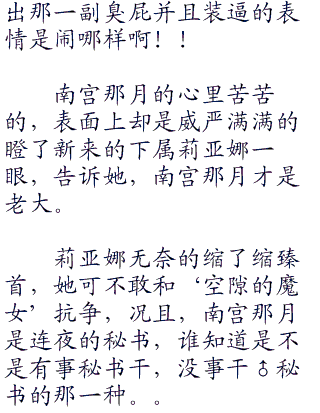 出那一副臭屁并且装逼的表
情是闹哪样啊！！
南宫那月的心里苦苦
的，表面上却是威严满满的
瞪了新来的下属莉亚娜一
眼，告诉她，南宫那月才是
老大。
莉亚娜无奈的缩了缩臻
首，她可不敢和‘空隙的魔
女’抗争，况且，南宫那月
是连夜的秘书，谁知道是不
是有事秘书干，没事干♂秘
书的那一种。。